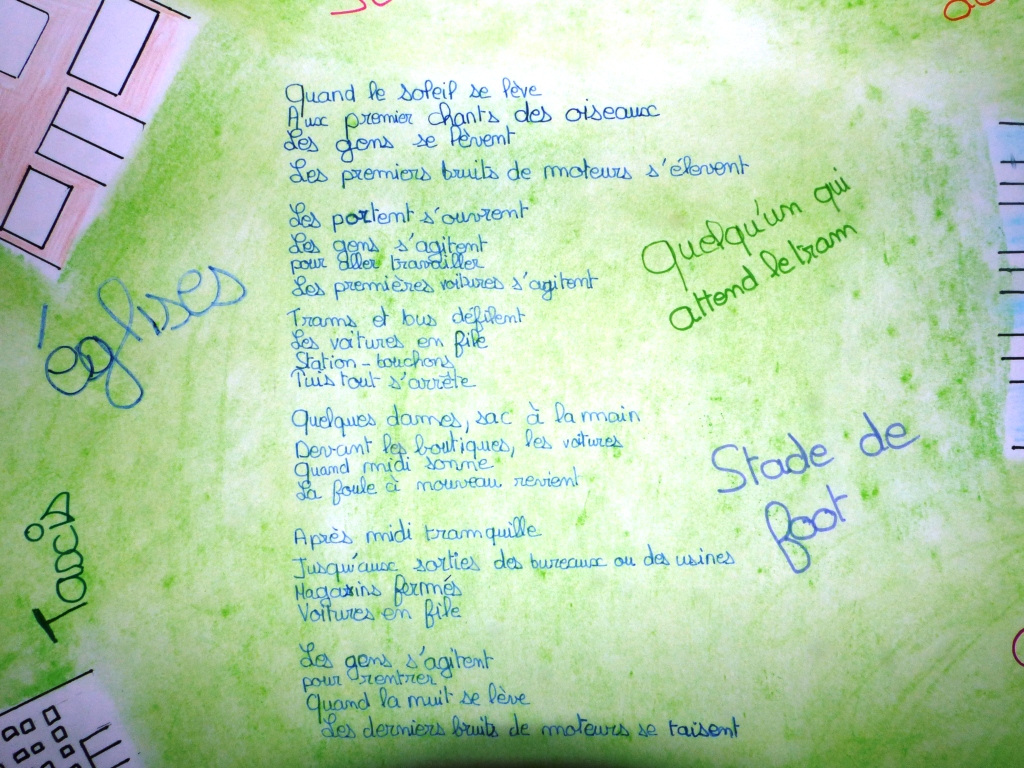 Quand le soleil se lève
Aux premier chants des oiseaux
Les gens se lèvent
Les premiers bruits de moteurs s'élevent
Les portent s'ouvrent
Les gens s'agitent
pour aller travailler
Les premières voitures s'agitent
Trams et bus défilent
Les voitures en file
Station-bouchons
Puis tout s'arrête
Quelques dames, sac à la main
Devant les boutiques, les voitures
Quand midi sonne
La foule à nouveau revient
Après midi tranquille
Jusqu'aux sorties des bureaux ou des usines
Magasins fermés
Voitures en file
Les gens s'agitent
pour rentrer
Quand la nuit se lève
Les derniers bruits de moteurs se taisent
églises
Taxis
Quelqu'un qui
attend le tram
Stade de
foot